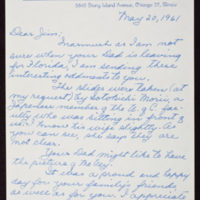 5845 Stony Island Avenue, Chicago 37, Illinois
May 20, 1961
Dear Jim,
Inasmuch as I am not
sure when your Dad is leaving
for Florida, I am sending these
interesting oddments to you.
The slides were taken (at
my request) by
Japanese member of the U. of C. fac-
ulty who was sitting in front of
us. I know his wife slightly. As
you can see, they are
not clear.
Your Dad might like to have
the picture of
It was a proud and happy
day for your family's friends,
as well as for you. I appreciate